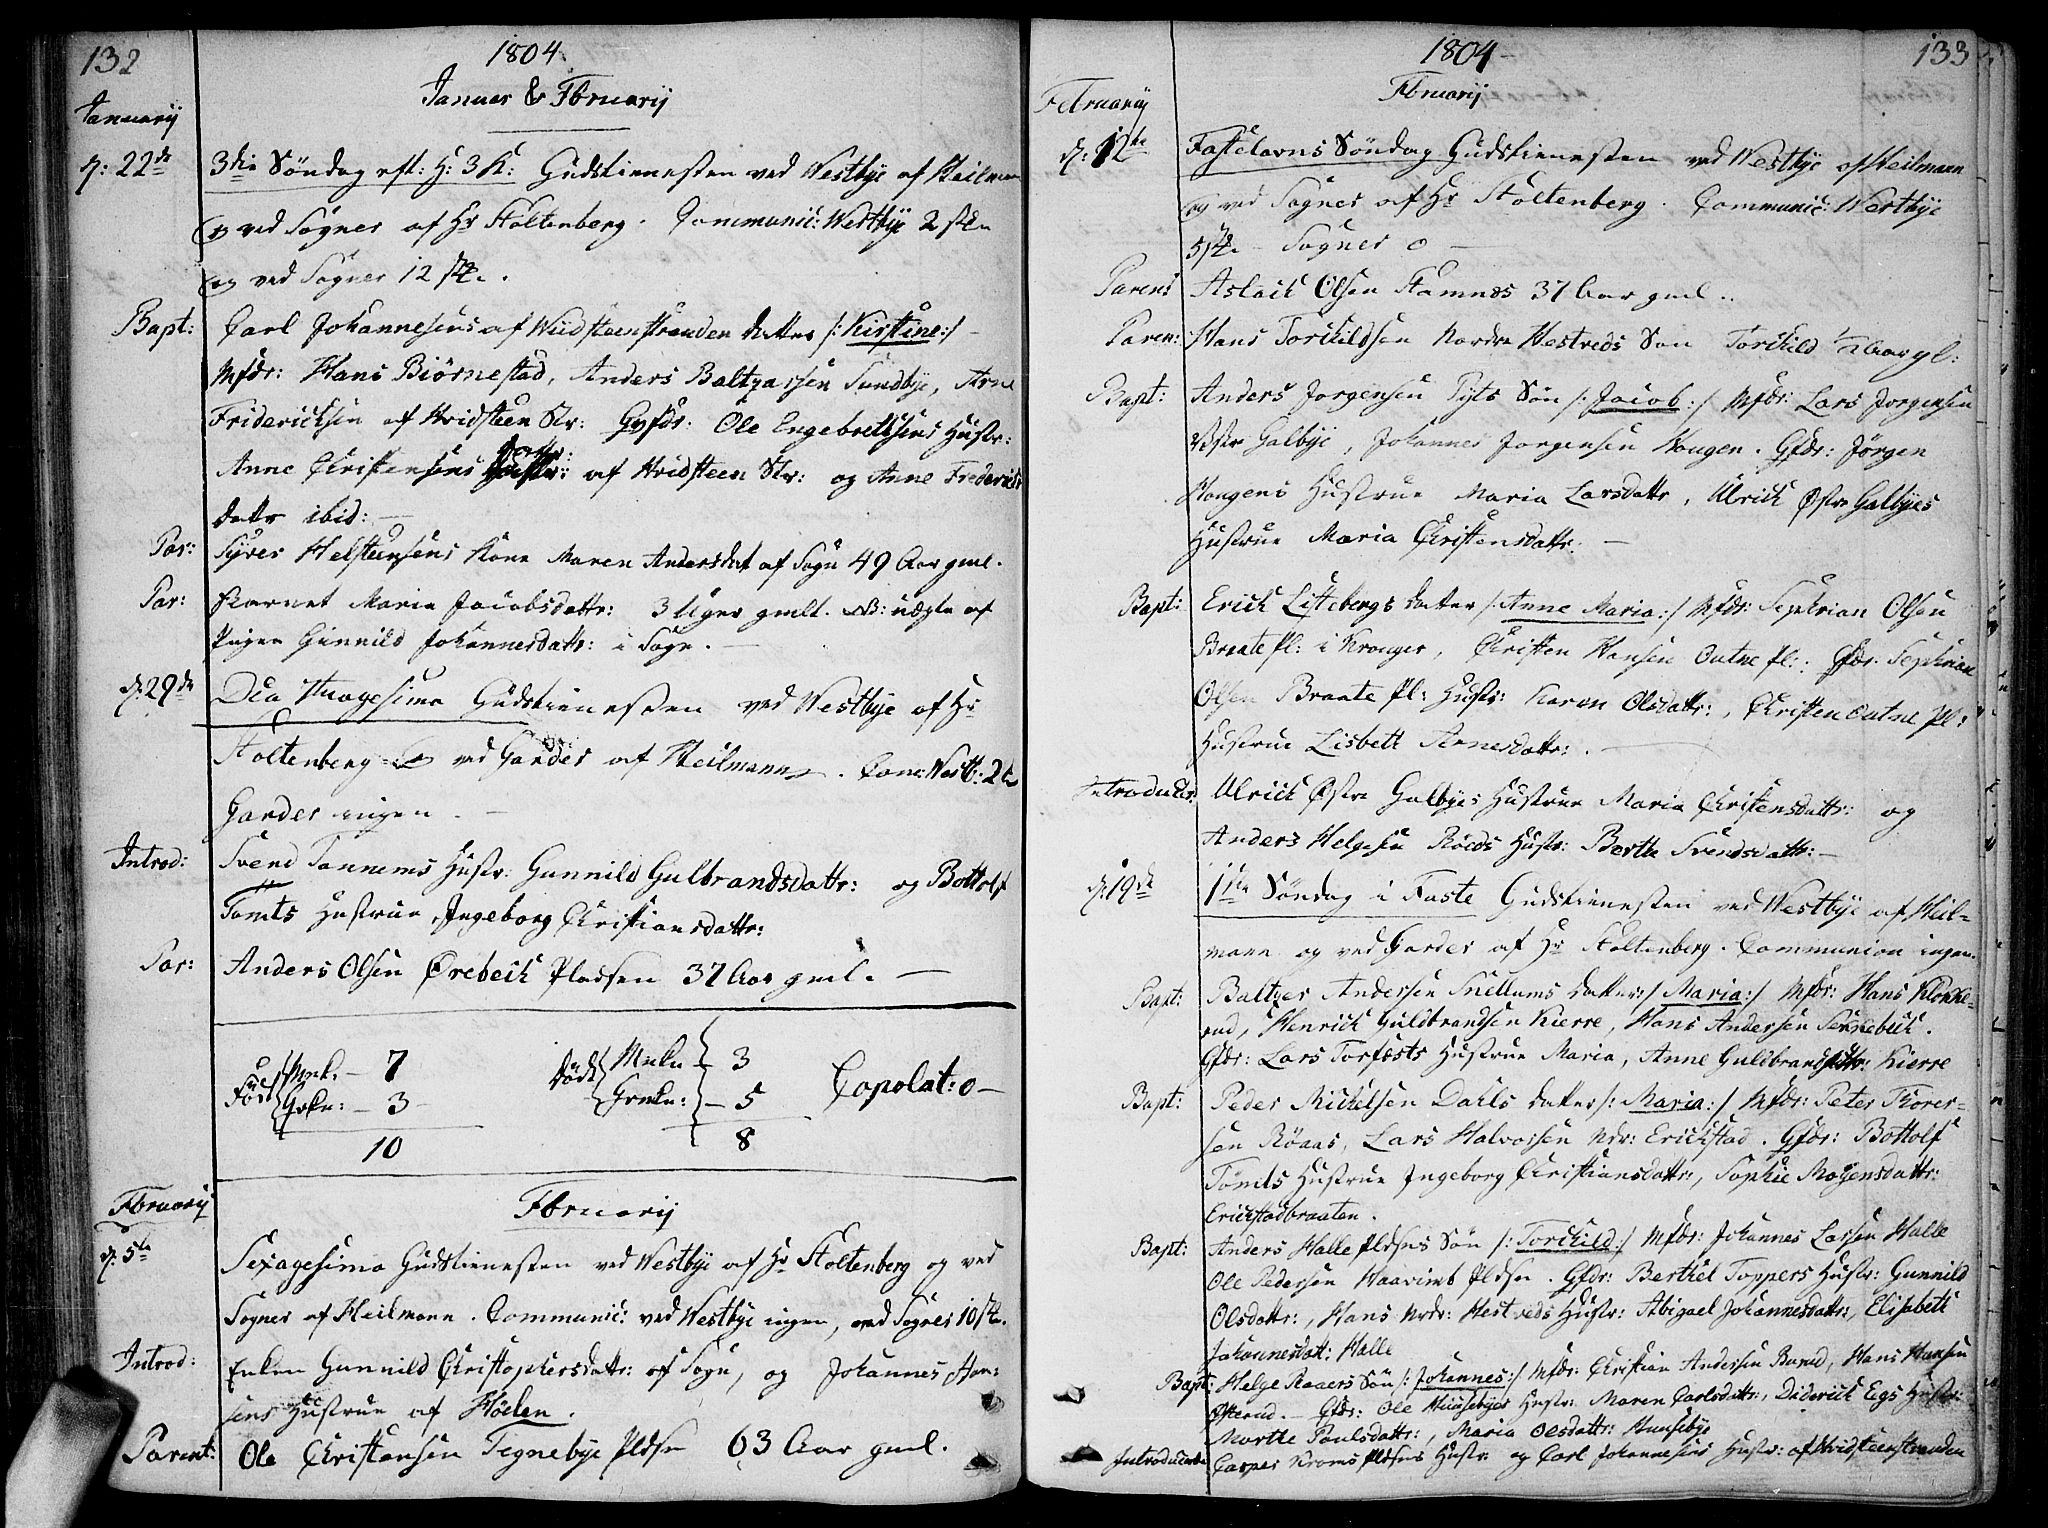 132
1804
Januar & Fbruarij
Januarij
d: 22de
3die Søndag eft: H: 3 K: Gudstienesten ved Westbye af Heilman
og ved Sogner af Hr Stoltenberg. Communic: Westbye 2 stk
og ved Sogner 12 stk.
Bapt: Carl Johannesens af Hvidsteenstranden datter /: Kirstine :/
Mfdr: Hans Biørnestad, Anders Baltzarsen Sundbye, Arne
Fridericksen af Hvidsteen Str: Gvfdr: Ole Engebretsens Hustr:
Anne Christensens dattr: af Hvidsteen Str: og Anne Fredericks
dattr ibid:
Par: Syver Helsteensens Kone Maren Andersdat af Sogn 49 Aar gml.
Par: Barnet Maria Jacobsdattr: 3 Uger gmlt. NB: uægte af
Pigen Gunnild Johannesdattr: i Sogn.
d: 29de
Dca Septuagesima Gudstienesten ved Westbye af Hr
Stoltenberg ved Garder af Heilmann. Com: Westb: 2
Garder ingen.
Introd: Svend Tannums Hustr: Gunnild Gulbrandsdattr: og Bottolf
Tomts Hustrue Ingeborg Christiansdattr:
Par: Anders Olsen Ørebeck Pladsen 37 Aar gml.
Fød Mnk. 7 Døde Mnkn 3 Copolat: 0
Qvkn: 3 Qvnkn: 5
10 8
Fbruarij
Fbruarij
d: 5te
Sexagesima Gudstienesten ved Westbye af Hr Stoltenberg og ved
Sogner af Heilmann. Communic: ved Westbye ingen, ved Sogner 10 stk.
Introd: Enken Gunnild Christophersdattr: af Sogn, og Johannes Han-
sens Hustrue af Høelen.
Parent: Ole Christensen Tegnebye Pldsn 63 Aar gml.
1804
133
Fbruarij
Februarij
d: 12te
Fastelavns Søndag Gudstienesten ved Westbye af Heilmann
og ved Sogner af Hr Stoltenberg. Communic: Westbye
5 stk. Sogner 0
Parent Aslack Olsen Stamnes 37 Aar gml.
Paren: Hans Torchildsen Nordre Hestveds Søn Torchild 1/2 Aar gl:
Bapt: Anders Jorgensen Pyts Søn /: Jacob :/ Mfdr: Lars Jorgensen
Vestr Galbye, Johannes Jorgensen Hougen. Gfdr: Jørgen
Hougens Hustrue Maria Larsdattr, Ulrich Østr Galbyes
Hustrue Maria Christensdattr:
Bapt: Erick Littebergs datter /: Anne Maria :/ Mfdr: Sephrian Olsen
Braate Pl: i Kroger, Christen Hansen Outne Pl:. Gfdr: Sephrian
Olsen Braate Pl: Hustr: Karen Olsdattr:, Christen Outne Pl:
Hustrue Lisbett Arnesdattr:.
Introducter: Ulrich Østre Galbyes Hustrue Maria Christensdattr: og
Anders Helgesen Røeds Hustr: Berthe Svendsdattr:
d: 19de
1ste Søndag i Faste Gudstienesten ved Westbye af Heil-
mann og ved Garder af Hr Stoltenberg. Communion ingen.
Bapt: Baltzer Andersen Snellums datter /: Maria :/ Mfdr: Hans Klokke-
rud, Henrich Guldbrandsen Kierre, Hans Andersen Sennebeck.
Gfdr: Lars Torfæsts Hustrue Maria, Anne Guldbrandsdttr: Kierre
Bapt: Peder Mickelsen Dahls datter /: Maria :/ Mfdr: Peter Thorer-
sen Røaas, Lars Halvorsen Ndr: Erickstad. Gfdr: Bottolf
Tomts Hustrue Ingeborg Christiansdattr:, Sophie Mogensdattr:
Erickstadbraaten.
Bapt: Anders Halle Pldsns Søn /: Torchild :/ Mfdr: Johannes Larsen Halle
Ole Pedersen Haavimb Pldsn. Gfdr: Berthel Toppers Hustr: Gunnild
Olsdattr:, Hans Nrdr: Hestveds Hustr: Abigael Johannesdattr:, Elisabeth
Johannesdatt: Halle
Bapt: Helge Raaers Søn /: Johannes :/ Mfdr: Christian Andersen Barud, Hans Hansen
Østerud. Gfdr: Ole Hunsebyes Hustr: Maren Carlsdattr:, Diderick Egs Hustr:
Morthe Poulsdattr:, Maria Olsdattr: Hunsebye
Introducerte Casper Kroms Pldsns Hustr: og Carl Johannesens Hustr: af Hvidsteenstranden